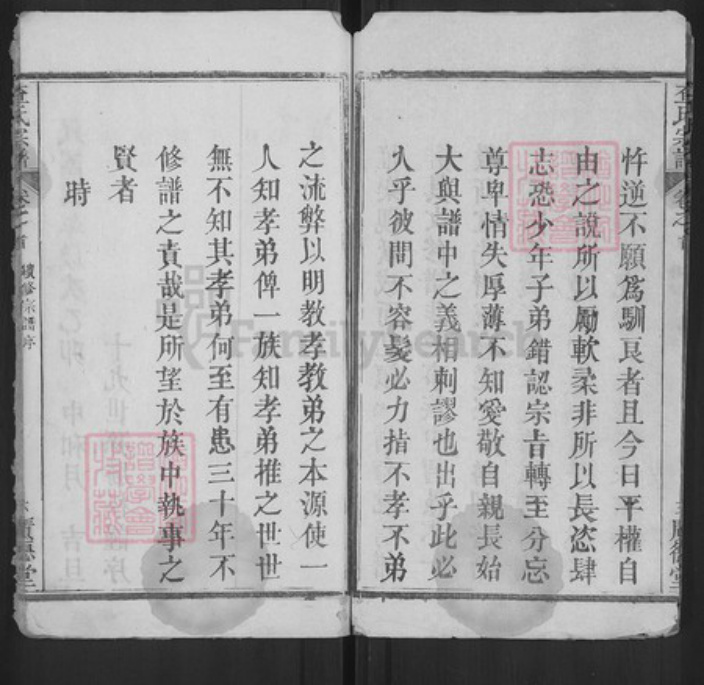 忤逆不願爲馴良者且今日平權自
由之說所以勵軟柔非所以長恣肆
志恐少年子弟錯認宗旨轉至分忘
尊卑情失厚薄不知愛敬自親長始
大與譜中之義相刺謬也出乎此必
入乎彼間不容髮必力指不孝不弟
之流弊以明教孝教弟之本源使一
人知孝弟俾一族知孝弟推之世世
無不知其孝弟何至有患三十年不
修譜之責哉是所望於族中執事之
賢者
時
查氏宗譜
卷之首
續修宗譜序
FamilySearch